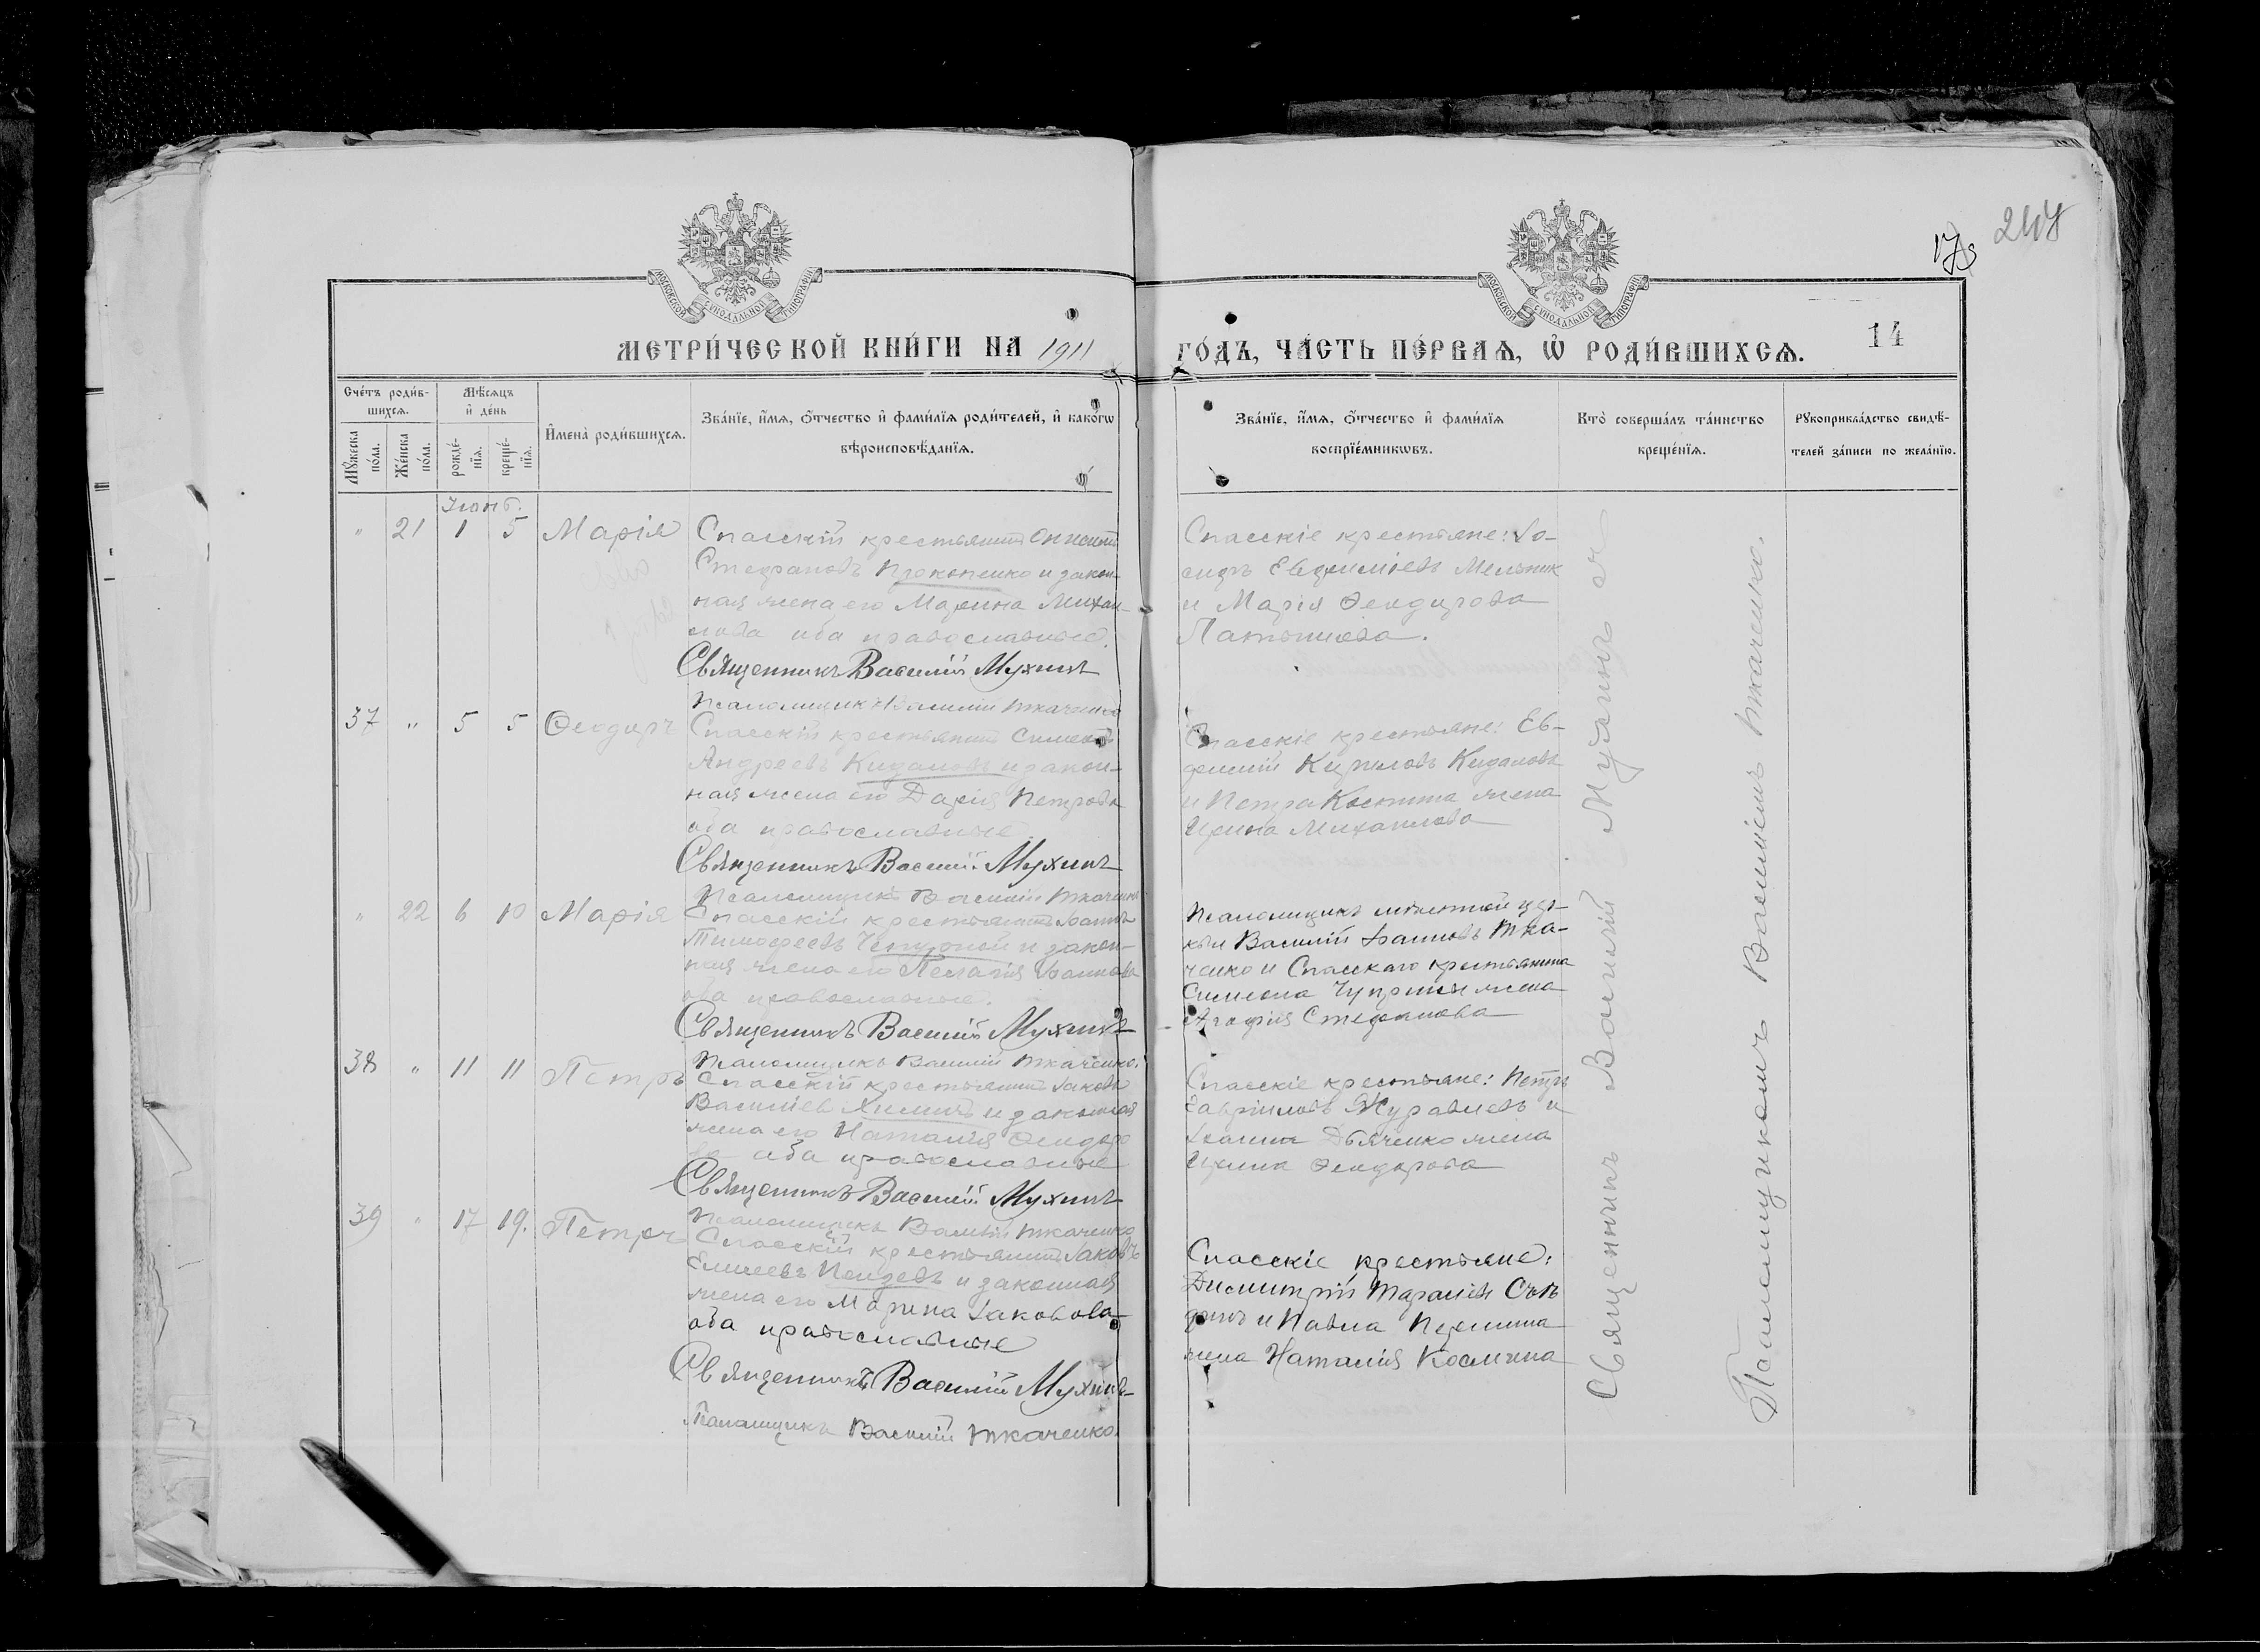 247
МОСКОВСКОЙ СѴНОДАЛЬНОЙ ТИПОГРАФІИ
МОСКОВСКОЙ СѴНОДАЛЬНОЙ ТИПОГРАФІИ
МЕТРИ́ЧЕСКОЙ КНИ́ГИ НА 1911
ГО́ДЪ, ЧА́СТЬ ПЕ́РВАѦ, Ѡ҆ РОДИ́ВШИХСѦ. 14
Сче́тъ роди́в-
шихсѧ.
Мꙋ́жеска по́ла.
Же́нска по́ла.
Мѣ́сѧцъ
и҆ де́нь
рожде́-
нїѧ.
креще́-
нїѧ.
И҆мена̀ роди́вшихсѧ.
Зва́нїе, и҆́мѧ, ѻ҆́тчество и҆ фами́лїѧ роди́телей, и҆ како́гѡ
вѣроисповѣ́данїѧ.
Зва́нїе, и҆́мѧ, ѻ҆́тчество и҆ фами́лїѧ
воспрїе́мникѡвъ.
Кто̀ соверша́лъ та́инство
креще́нїѧ.
Рꙋкоприкла́дство свидѣ́-
телей за́писи по жела́нїю.
Іюнь.
" 21 1 5 Марія
Спасскій крестьянинъ
Стефановъ Прокопенко и закон-
ная жена его Марина Михаи-
лова оба православные
Священникъ Василій Мухинъ
Псаломщикъ Василій Ткаченко
Спасскіе крестьяне: Іо-
сифъ Евфиміевъ Мельник
и Марія Ѳеодорова
37 " 5 5 Ѳеодоръ
Спасскій крестьянинъ Симеонъ
Андреевъ Кидаловъ и закон-
ная жена его Дарія Петрова
оба православные
Священникъ Василій Мухинъ
Псаломщикъ Василій Ткаченко
Спасскіе крестьяне: Ев-
фимій Кириловъ Кидаловъ
и Петра Костина жена
Ирина Михаилова
" 22 6 10 Марія
Спасскій крестьянинъ Іоаннъ
Тимофеевъ Чепурной и закон-
ная жена его Пелагія Іоаннова
оба православные.
Священникъ Василій Мухинъ
Псаломщикъ Василій Ткаченко.
Псаломщикъ мѣстной цер-
кви Василій Іоанновъ Тка-
ченко и Спасскаго крестьянина
Симеона Чуприны жена
Агафія Стефанова
38 " 11 11 Петръ
Спасскій крестьянинъ Іаковъ
Василіев Химичъ и законная
жена его Наталія Ѳеодоро
ва оба православные
Священникъ Василій Мухинъ
Псаломщикъ Василій Ткаченко
Спасскіе крестьяне: Петръ
Гавріиловъ Журавлевъ и
Іоанна Дьяченко жена
Ирина Ѳеодорова
39 " 17 19. Петръ
Спасскій крестьянинъ Іаковъ
Елисеевъ и законная
жена его Марина Іаковова
оба православные
Священникъ Василій Мухинъ
Псаломщикъ Василій Ткаченко.
Спасскіе крестьяне:
Димитрій
и Павла
жена Наталія Космина
Священникъ Василій Мухинъ съ
Псаломщикомъ Василіемъ Ткаченко.